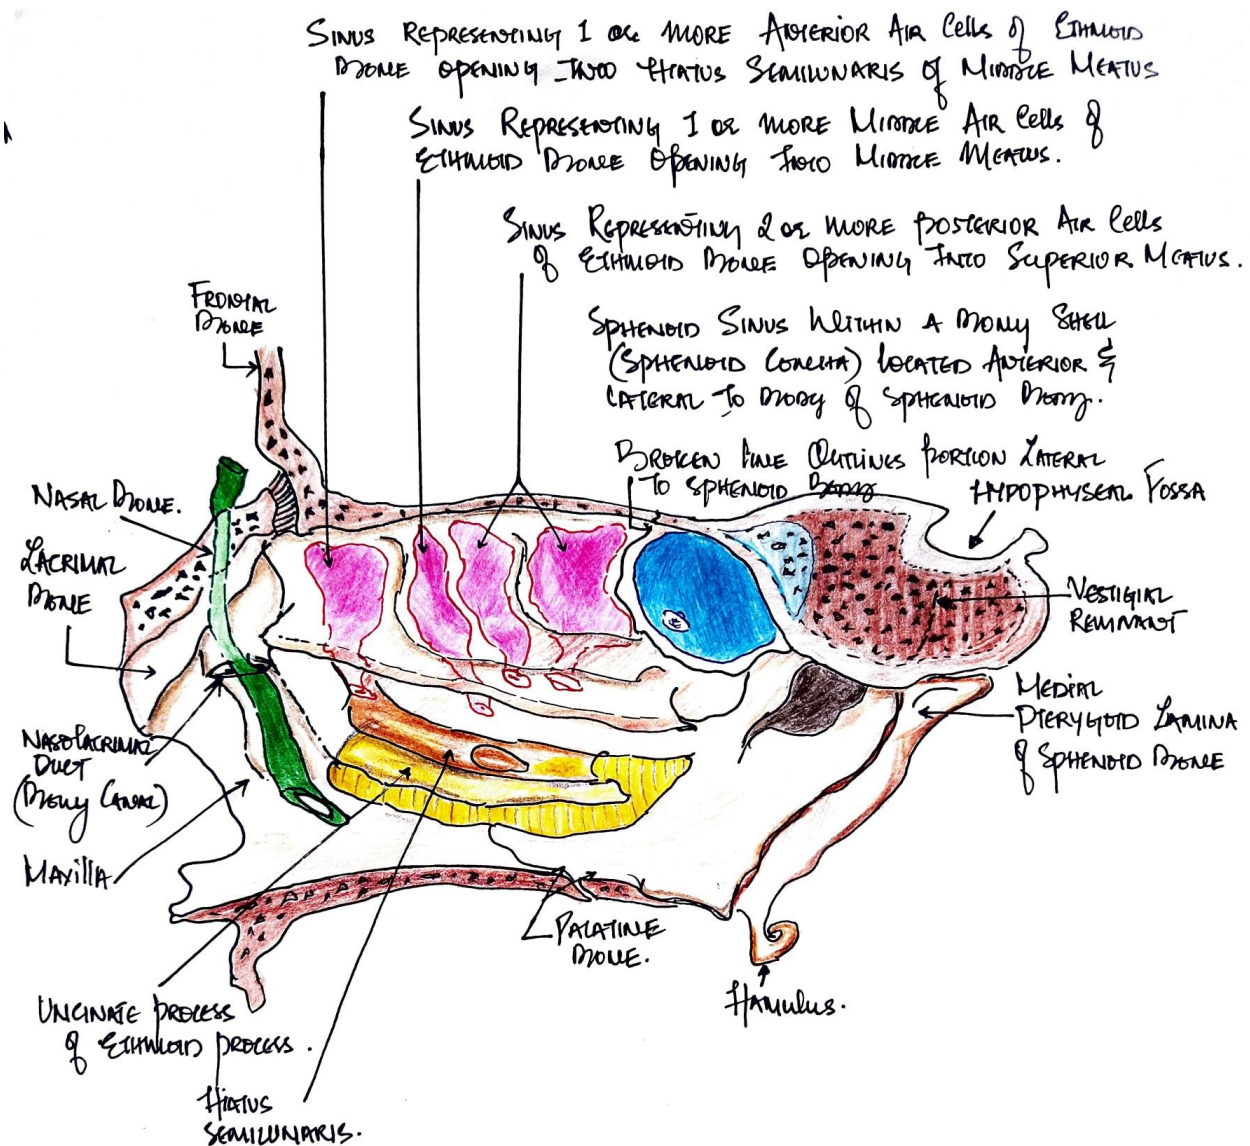 SINUS REPRESENTING 1 OR MORE ANTERIOR AIR Cells of ETHMOID
BONE OPENING INTO HIATUS SEMILUNARIS of MIDDLE MEATUS
SINUS REPRESENTING 1 OR MORE MIDDLE AIR Cells of
ETHMOID BONE OPENING INTO MIDDLE MEATUS.
SINUS REPRESENTING 2 OR MORE POSTERIOR AIR Cells
of ETHMOID BONE OPENING INTO SUPERIOR MEATUS.
FRONTAL
BONE
SPHENOID SINUS WITHIN A BONY SHELL
(SPHENOID CONCHA) LOCATED ANTERIOR &
LATERAL TO BODY of SPHENOID BODY.
BROKEN LINE OUTLINES PORTION LATERAL
TO SPHENOID BODY
HYPOPHYSEAL FOSSA
NASAL BONE.
LACRIMAL
BONE
VESTIGIAL
REMNANT
MEDIAL
PTERYGOID LAMINA
of SPHENOID BONE
NASOLACRIMAL
DUCT
(BONY CANAL)
MAXILLA
PALATINE
BONE.
HAMULUS.
UNCINATE PROCESS
of ETHMOID PROCESS.
HIATUS
SEMILUNARIS.